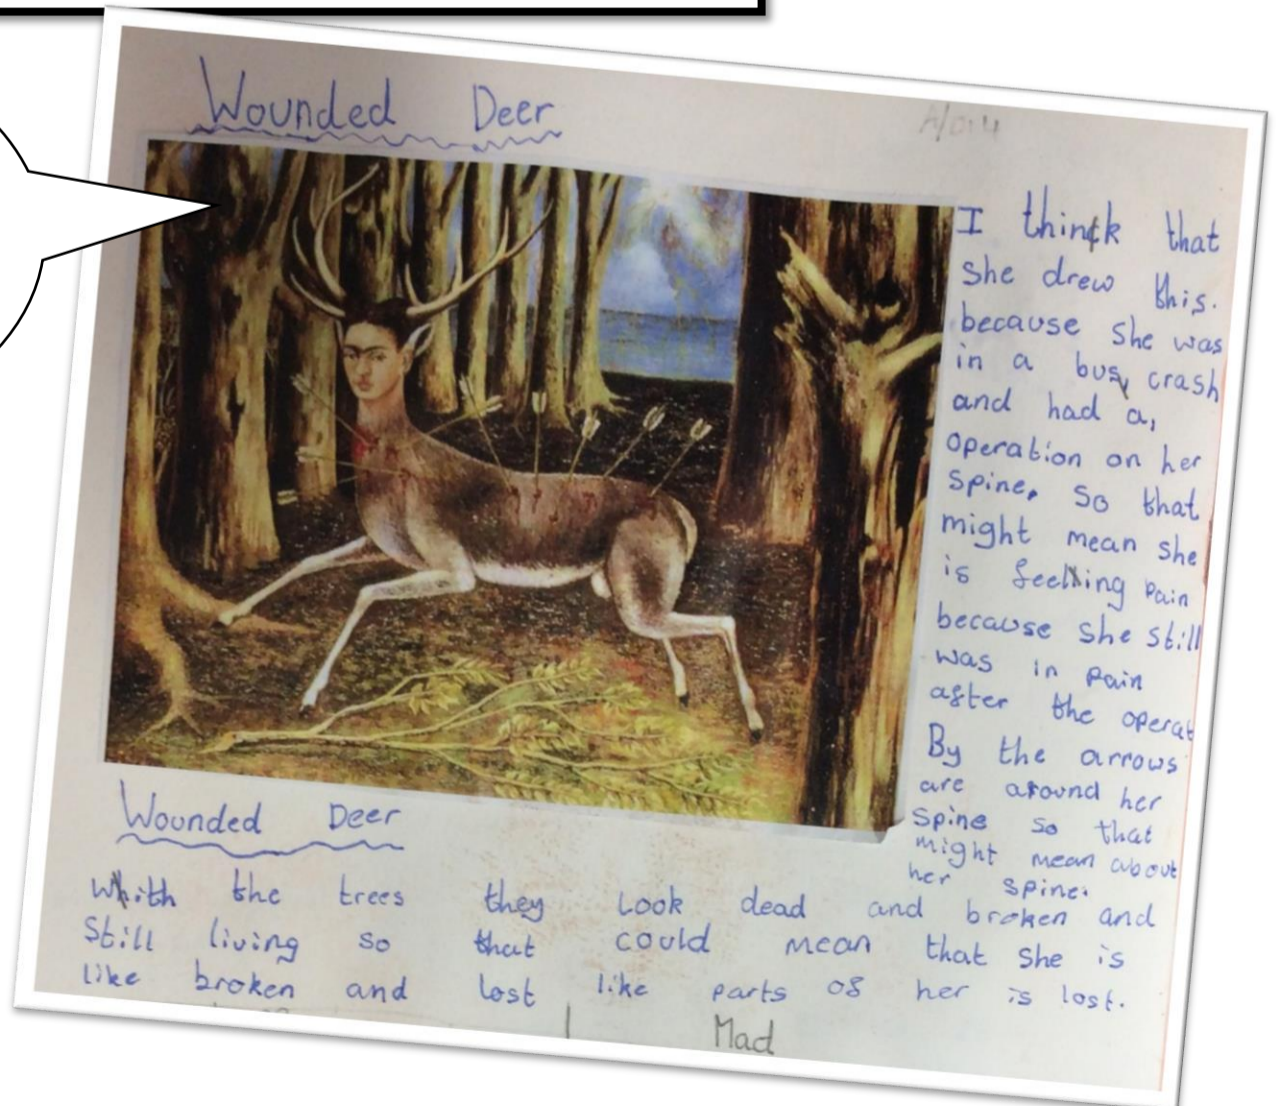 Wounded Deer
I think that
she drew this.
because she was
in a bus crash
and had a,
operation on her
spine, so that
might mean she
is feeling pain
because she still
was in pain
after the operat
By the arrows
are around her
spine so that
might mean about
her spine.
Wounded Deer
with the trees they look dead and broken and
Still living so that could mean that she is
like broken and lost like parts of her is lost.
Mad